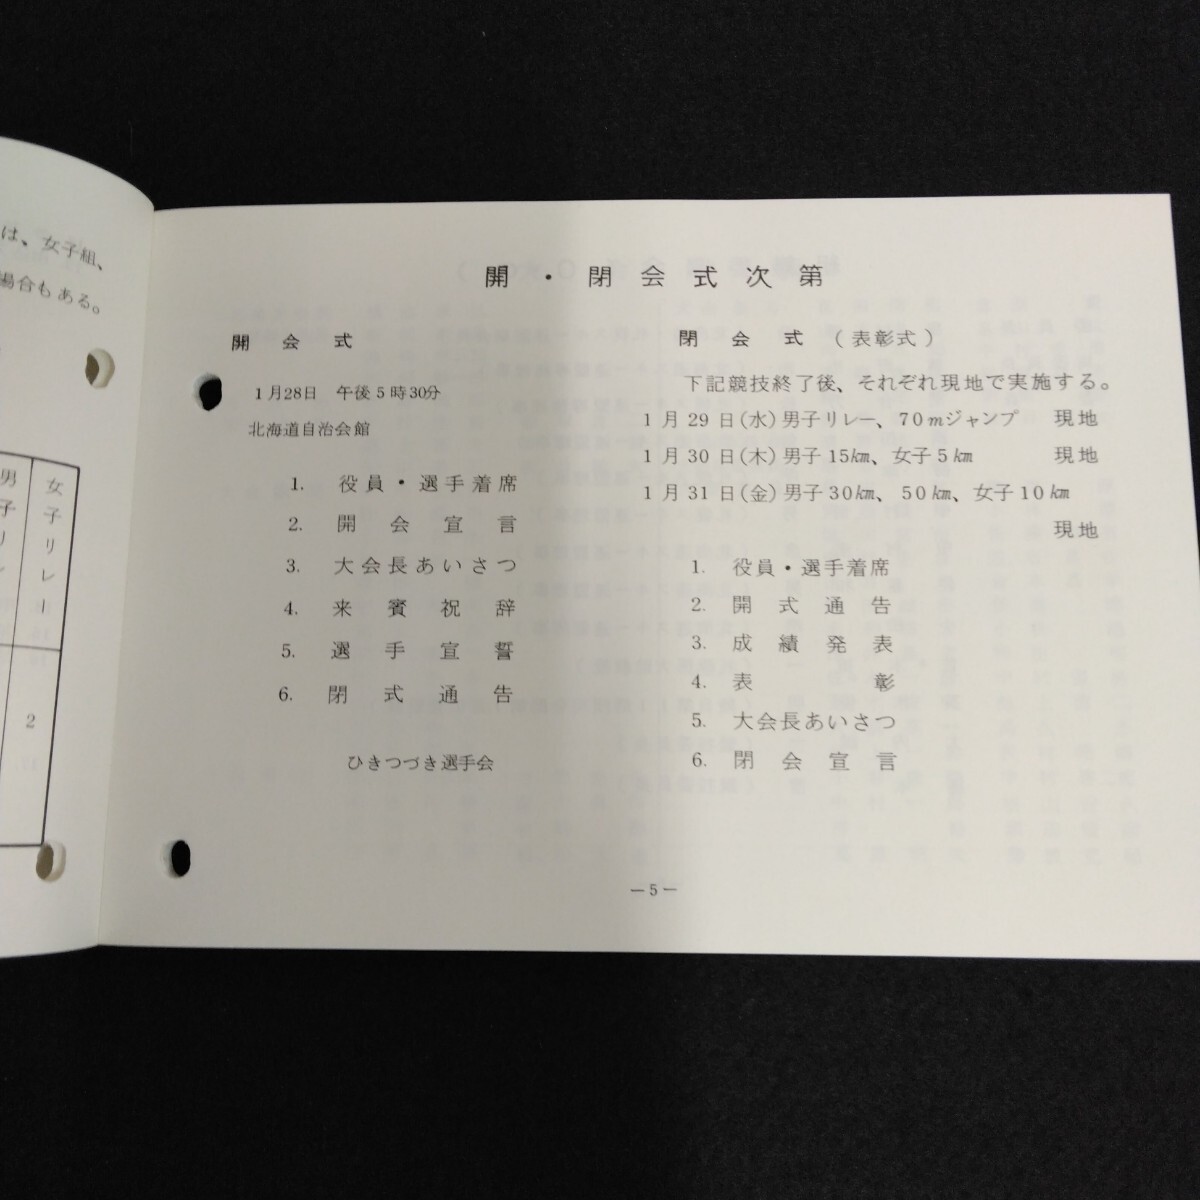 は、女子組、
場合もある。
男子リレ
女子リレー
2
開・閉会式次第
開会式
1月28日 午後5時30分
北海道自治会館
1. 役員・選手着席
2. 開会宣言
3. 大会長あいさつ
4. 来賓祝辞
5. 選手宣誓
6. 閉式通告
ひきつづき選手会
閉会式（表彰式）
下記競技終了後、それぞれ現地で実施する。
1月29日(水)男子リレー、70mジャンプ 現地
1月30日(木)男子15㎞、女子5㎞ 現地
1月31日(金)男子30㎞、50㎞、女子10㎞
現地
1. 役員・選手着席
2. 開式通告
3. 成績発表
4. 表彰
5. 大会長あいさつ
6. 閉会宣言
—5—